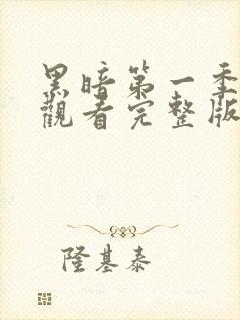 黑暗第一季
觀看完整版
隆基泰